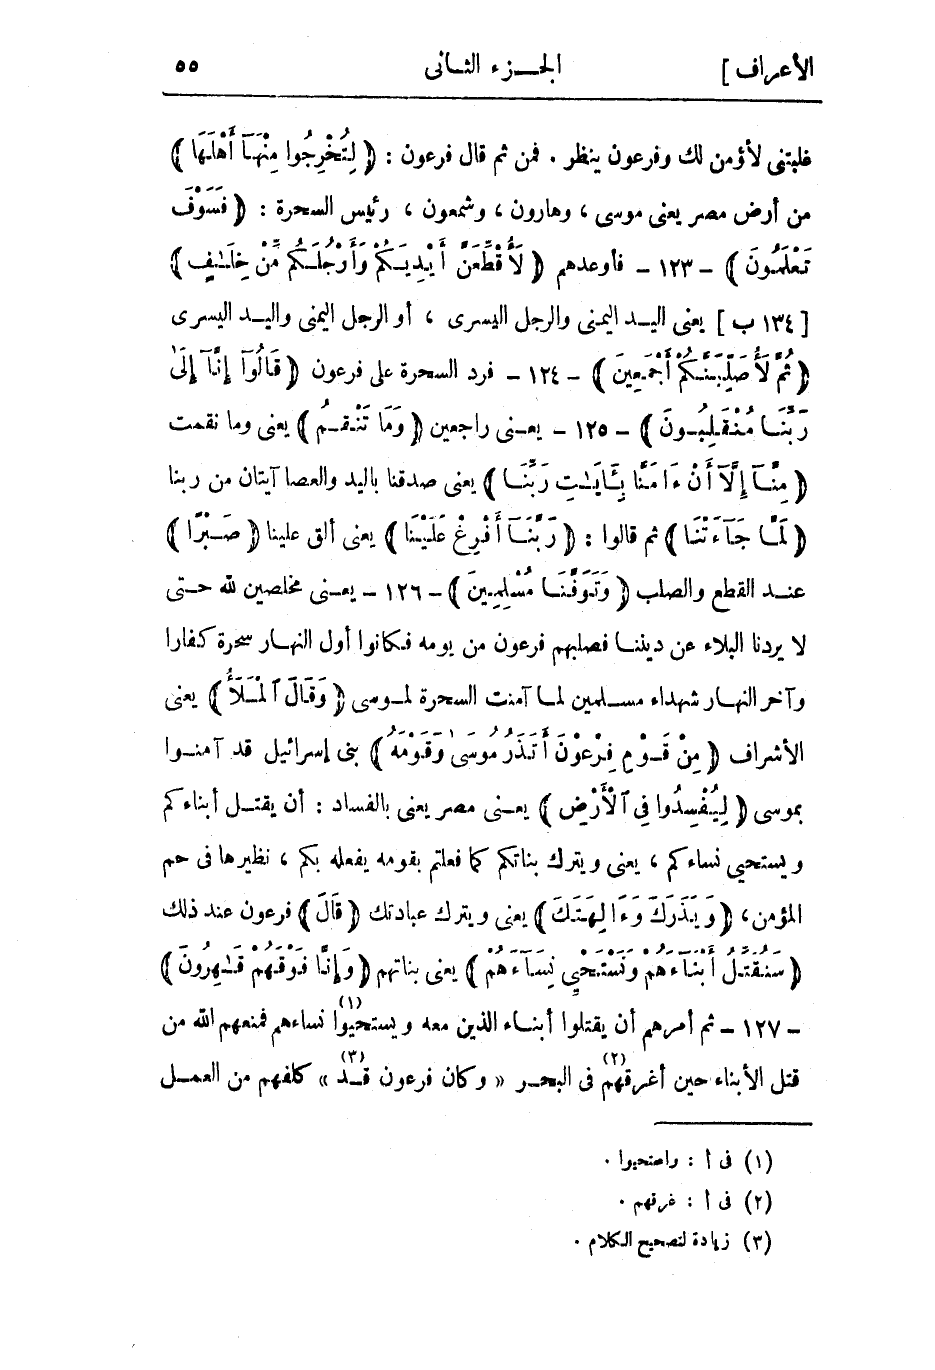 الأعراف] الجزء الثانى ٥٥
فلبتنى لأؤمن لك وفرعون ينظر . فمن ثم قال فرعون : ﴿ لِتُخْرِجُوا مِنْهَآ أَهْلَهَا ﴾
من أرض مصر يعنى موسى ، وهارون ، وشمعون ، رئيس السحرة : ﴿ فَسَوْفَ
تَعْلَمُونَ ﴾ - ١٢٣ - فأوعدهم ﴿ لَأُقَطِّعَنَّ أَيْدِيَكُمْ وَأَرْجُلَكُم مِّنْ خِلَـٰفٍ ﴾
[ ١٣٤ ب ] يعنى اليد اليمنى والرجل اليسرى ، أو الرجل اليمنى واليد اليسرى
﴿ ثُمَّ لَأُصَلِّبَنَّكُمْ أَجْمَعِينَ ﴾ - ١٢٤ - فرد السحرة على فرعون ﴿ قَالُوٓا إِنَّآ إِلَىٰ
رَبِّنَا مُنقَلِبُونَ ﴾ - ١٢٥ - يعنى راجعين ﴿ وَمَا تَنقِمُ ﴾ يعنى وما نقمت
﴿ مِنَّآ إِلَّآ أَنْ ءَامَنَّا بِـَٔايَـٰتِ رَبِّنَا ﴾ يعنى صدقنا باليد والعصا آيتان من ربنا
﴿ لَمَّا جَآءَتْنَا ﴾ ثم قالوا : ﴿ رَبَّنَآ أَفْرِغْ عَلَيْنَا ﴾ يعنى ألق علينا ﴿ صَبْرًا ﴾
عند القطع والصلب ﴿ وَتَوَفَّنَا مُسْلِمِينَ ﴾ - ١٢٦ - يعنى مخلصين لله حتى
لا يردنا البلاء عن ديننا فصلبهم فرعون من يومه فكانوا أول النهار سحرة كفارا
وآخر النهار شهداء مسلمين لما آمنت السحرة لموسى ﴿ وَقَالَ ٱلْمَلَأُ ﴾ يعنى
الأشراف ﴿ مِن قَوْمِ فِرْعَوْنَ أَتَذَرُ مُوسَىٰ وَقَوْمَهُ ﴾ بنى إسرائيل قد آمنوا
بموسى ﴿ لِيُفْسِدُوا فِى ٱلْأَرْضِ ﴾ يعنى مصر يعنى بالفساد : أن يقتل أبناءكم
ويستحيي نساءكم ، يعنى ويترك بناتكم كما فعلتم بقومه يفعله بكم ، نظيرها فى حم
المؤمن، ﴿ وَيَذَرَكَ وَءَالِهَتَكَ ﴾ يعنى ويترك عبادتك ﴿ قَالَ ﴾ فرعون عند ذلك
﴿ سَنُقَتِّلُ أَبْنَآءَهُمْ وَنَسْتَحْيِي نِسَآءَهُمْ ﴾ يعنى بناتهم ﴿ وَإِنَّا فَوْقَهُمْ قَـٰهِرُونَ ﴾
- ١٢٧ - ثم أمرهم أن يقتلوا أبناء الذين معه ويستحيوا (١) نساءهم فمنعهم الله من
قتل الأبناء حين أغرقهم (٢) فى البحر « وكان فرعون قد (٣) » كلفهم من العمل
(١) فى أ : واستحيوا .
(٢) فى أ : غرقهم .
(٣) زيادة لتصحيح الكلام .